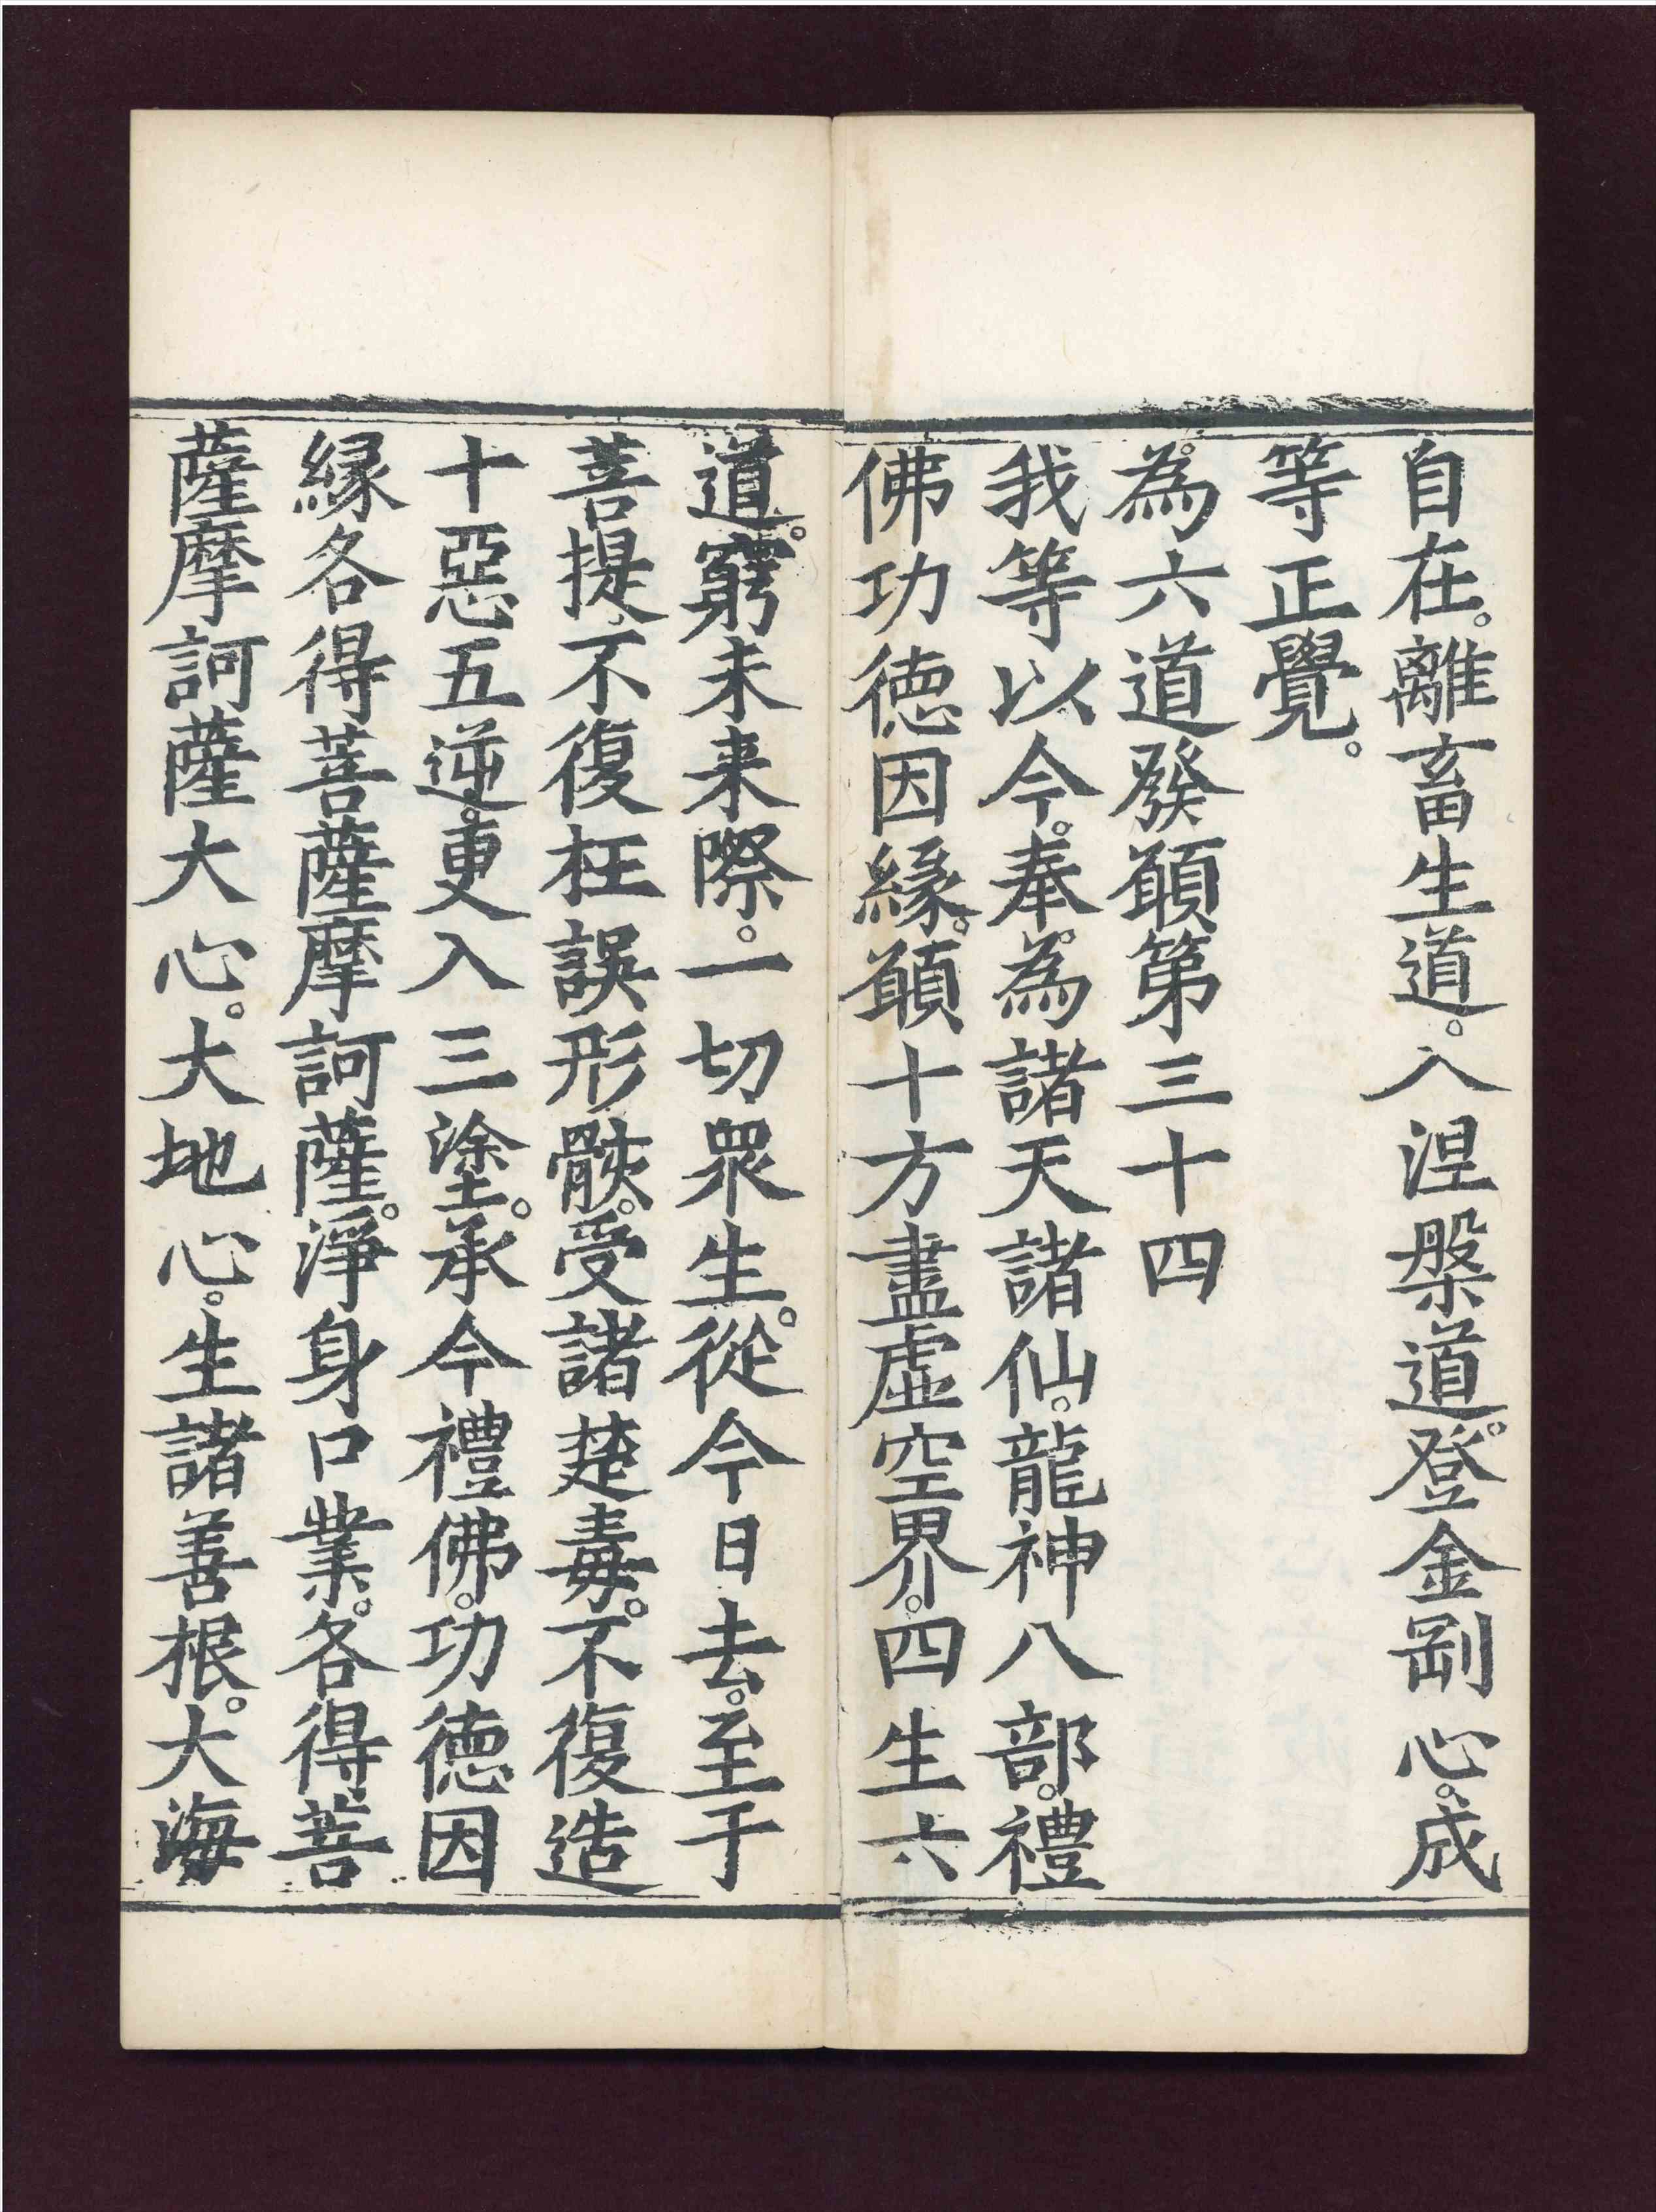 自在。離畜生道。入涅槃道。登金剛心。成
等正覺。
為六道發願第三十四
我等以今。奉為諸天諸仙。龍神八部。禮
佛功德因緣。願十方盡虛空界。四生六
道。窮未来際。一切眾生。從今日去。至于
菩提、不復枉誤形骸。受諸楚毒。不復造
十惡五逆。更入三塗。承今禮佛。功德因
緣各得菩薩摩訶薩。淨身口業。各得菩
薩摩訶薩大心。大地心。生諸善根。大海